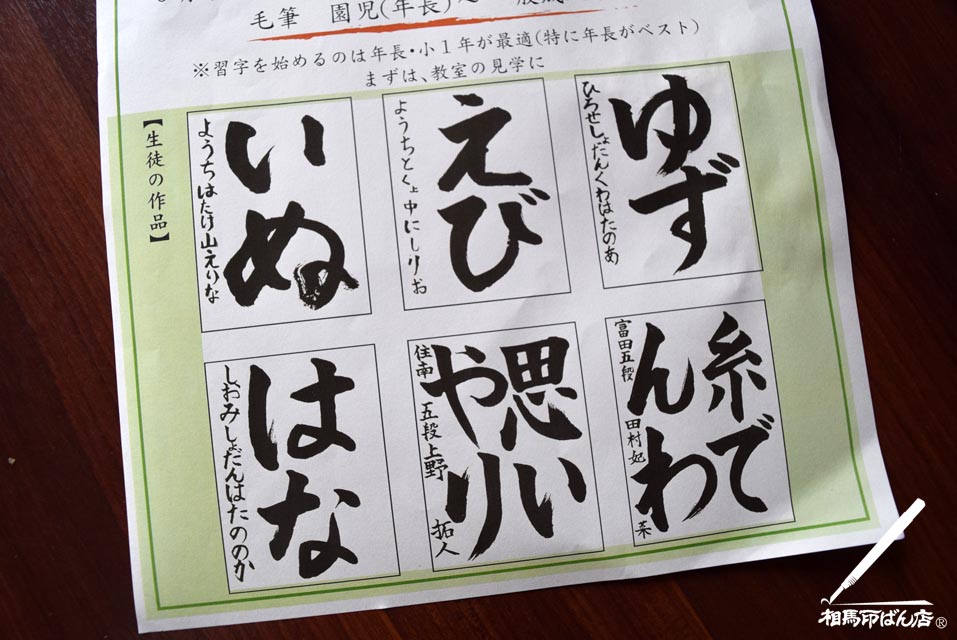 毛筆 園児(年長)
※習字を始めるのは年長・小1年が最適(特に年長がベスト)
まずは、教室の見学に
【生徒の作品】
ゆず
ひろせしょだんくわはたのあ
えび
中にしりお
いぬ
ようちはたけ山えりな
糸で
んわ
富田五段 田村妃菜
思い
やり
住南 五段上野 拓人
はな
しおみしょだんはたののか
相馬印ばん店®